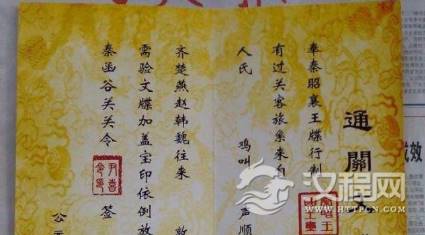 通關文
奉秦昭襄王牒行制
有过关客旅系来自
人民 鸡叫 声顺
齐楚燕赵韩魏往来
需验文牒加盖宝印依倒放
秦函谷关关令 签
公元
汉程网